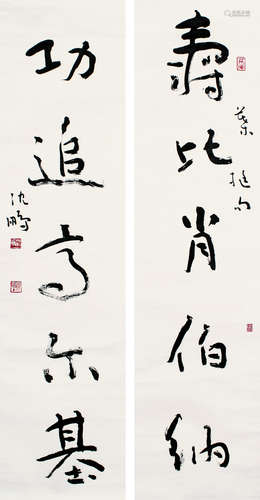 壽比肖伯納
葉挺句
功追高尔基
沈鵬